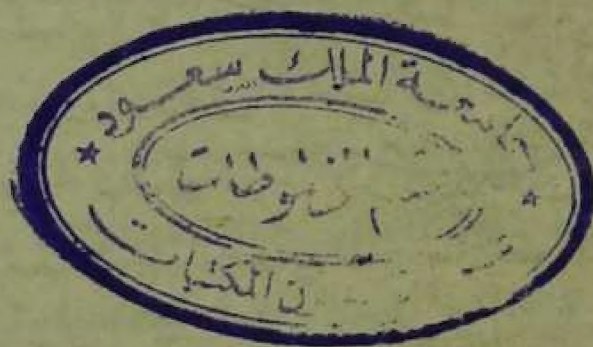 جامعة الملك سعود
المخطوطات
المكتبات